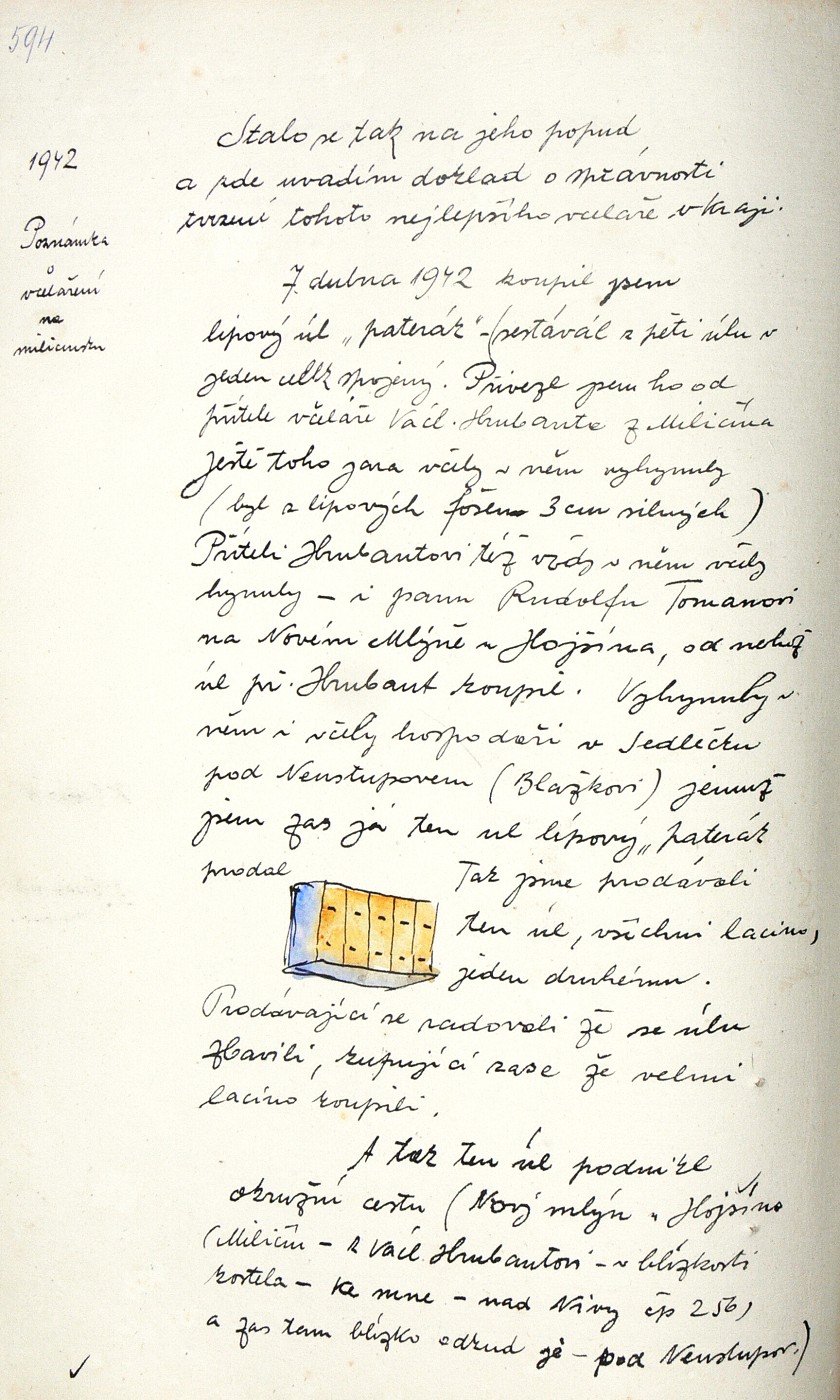 594
1942
Poznámka
o
včelaření
na
miličínsku
Stalo se tak na jeho popud
a zde uvadím doklad o správnosti
tvrzení tohoto nejlepšího včelaře v kraji.
7. dubna 1942 koupil jsem
lípový úl „paterák" - (sestávál z pěti úlu v
jeden cellk spojený. Přivezl jsem ho od
přítele včelaře Václ. Hrubanta z Miličína
Ještě toho jara včely v něm vyhynuly
(byl z lipových fošen 3 cm silných)
Příteli Hrubantovi též vždy v něm včely
hynuly - i panu Rudolfu Tomanovi
na Novém Mlýně u Hojšína, od nehož
úl př. Hrubant koupil. Vyhynuly v
něm i včely hospodáři v Sedlečku
pod Neustupovem (Blažkovi) jemuž
jsem zas já ten ul lípový „paterák
prodal
Tak jsme prodávali
ten úl, všichni lacino,
jeden druhému.
Prodávající se radovali že se úlu
zbavili, kupující zase že velmi
lacino koupili.
A tak ten úl podnikl
okružní cestu (Nový mlýn u Hojšína
(Miličín - k Václ. Hrubantovi - v blízkosti
kostela - ke mne - nad Nivy čp 256)
a zas tam blízko odkud je - pod Neustupov.)